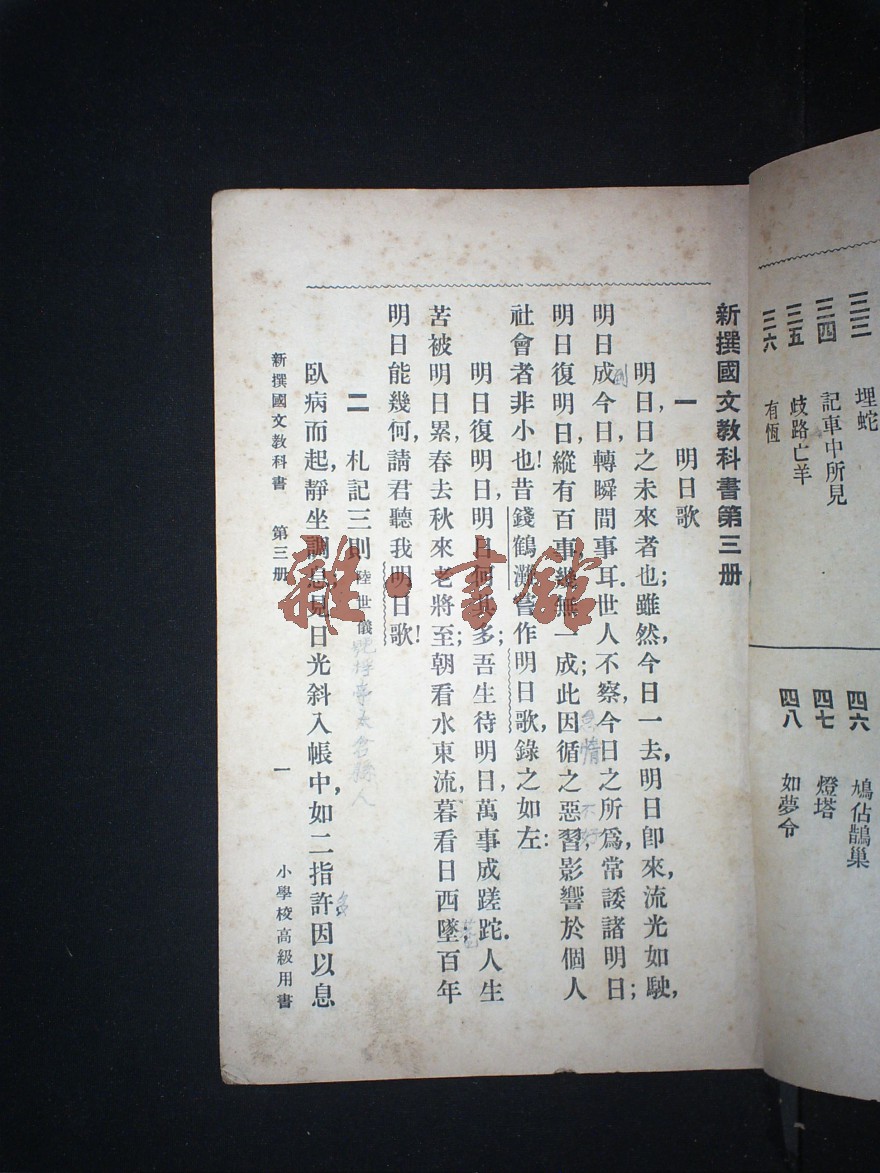 三三 埋蛇
三四 記車中所見
三五 歧路亡羊
三六 有恆
四六 鳩佔鵲巢
四七 燈塔
四八 如夢令
新撰國文教科書第三册
一 明日歌
明日,日之未來者也;雖然,今日一去,明日卽來,流光如駛,
明日成今日,轉瞬間事耳.世人不察,今日之所爲,常諉諸明日;
明日復明日,縱有百事,總無一成;此因循之惡習,影響於個人
社會者非小也!昔錢鶴灘嘗作明日歌,錄之如左:
明日復明日,明日何其多;吾生待明日,萬事成蹉跎.人生
苦被明日累,春去秋來老將至;朝看水東流,暮看日西墜;百年
明日能幾何,請君聽我明日歌!
二 札記三則 陸世儀
號桴亭太倉縣人
臥病而起,靜坐調息,見日光斜入帳中,如二指許,因以息
新撰國文教科書 第三册 一 小學校高級用書
雜·書館